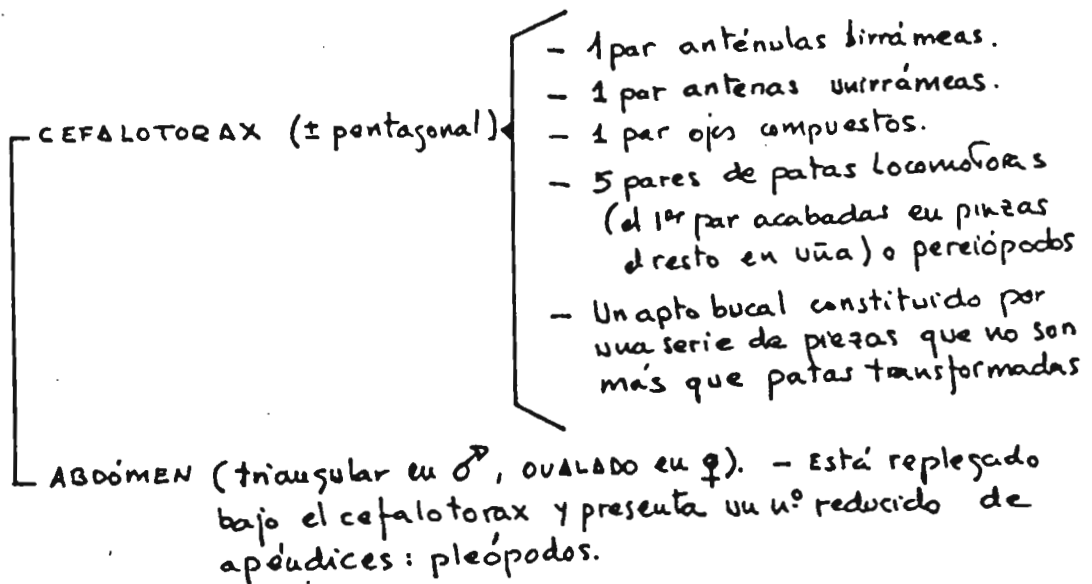 - 1 par anténulas birrámeas.
- 1 par antenas unirrámeas.
CEFALOTORAX (± pentagonal)
- 1 par ojos compuestos.
- 5 pares de patas locomotoras
(el 1er par acabadas en pinzas
el resto en uña) o pereiópodos
- Un apto bucal constituido por
una serie de piezas que no son
más que patas transformadas
ABDÓMEN (triangular en ♂, OVALADO en ♀). - Está replegado
bajo el cefalotorax y presenta un nº reducido de
apéndices: pleópodos.